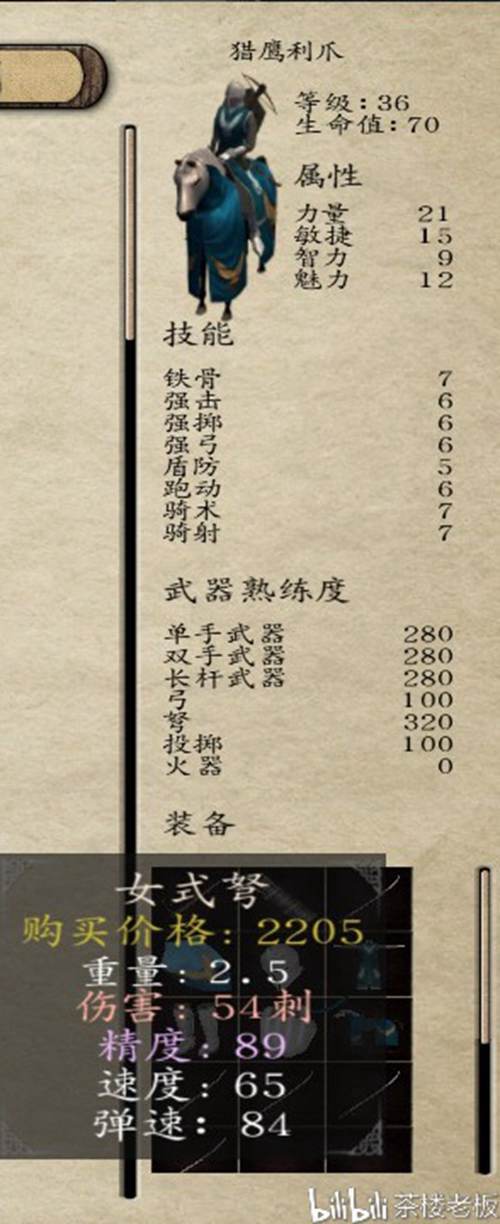 猎鹰利爪
等级:36
生命值:70
属性
力量 21
敏捷 15
智力 9
魅力 12
技能
铁骨 7
强击 6
强掷 6
强弓 6
盾防 5
跑动 6
骑术 7
骑射 7
武器熟练度
单手武器 280
双手武器 280
长杆武器 280
弓 100
弩 320
投掷 100
火器 0
装备
女式弩
购买价格: 2205
重量: 2.5
伤害: 54刺
精度: 89
速度: 65
弹速: 84
bilibili 茶楼老板